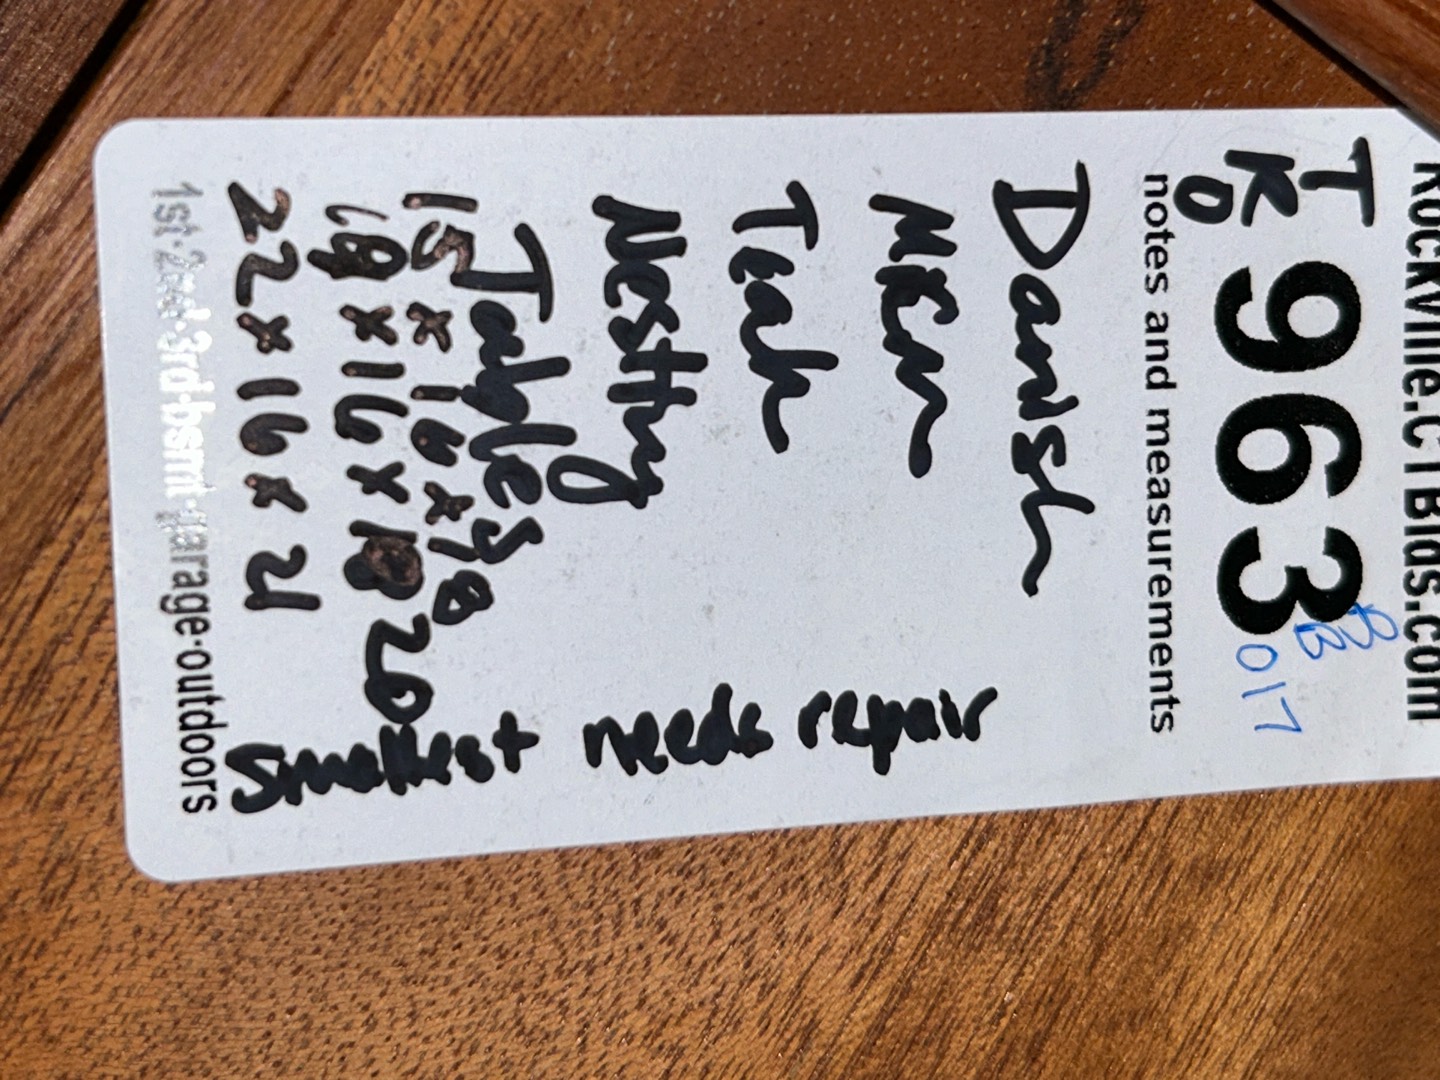 Rockville.CTBids.com
TKO 963
BB 017
notes and measurements
Danish
MCm
Teak
Nesting
Tables
15 x 16 x 18
18 x 16 x 20
22 x 16 x 21
needs repair
smallest
1st·2nd·3rd·bsmt·garage·outdoors